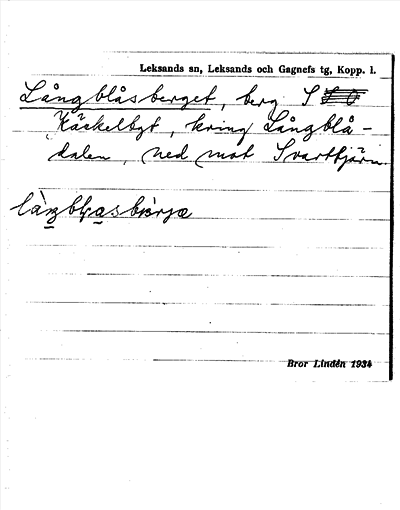 Leksands sn, Leksands och Gagnefs tg, Kopp. l.
Långblåsberget, berg S
Käckelbgt, kring Långblå-
dalen, ned mot Svarttjärn.
Bror Lindén 1934